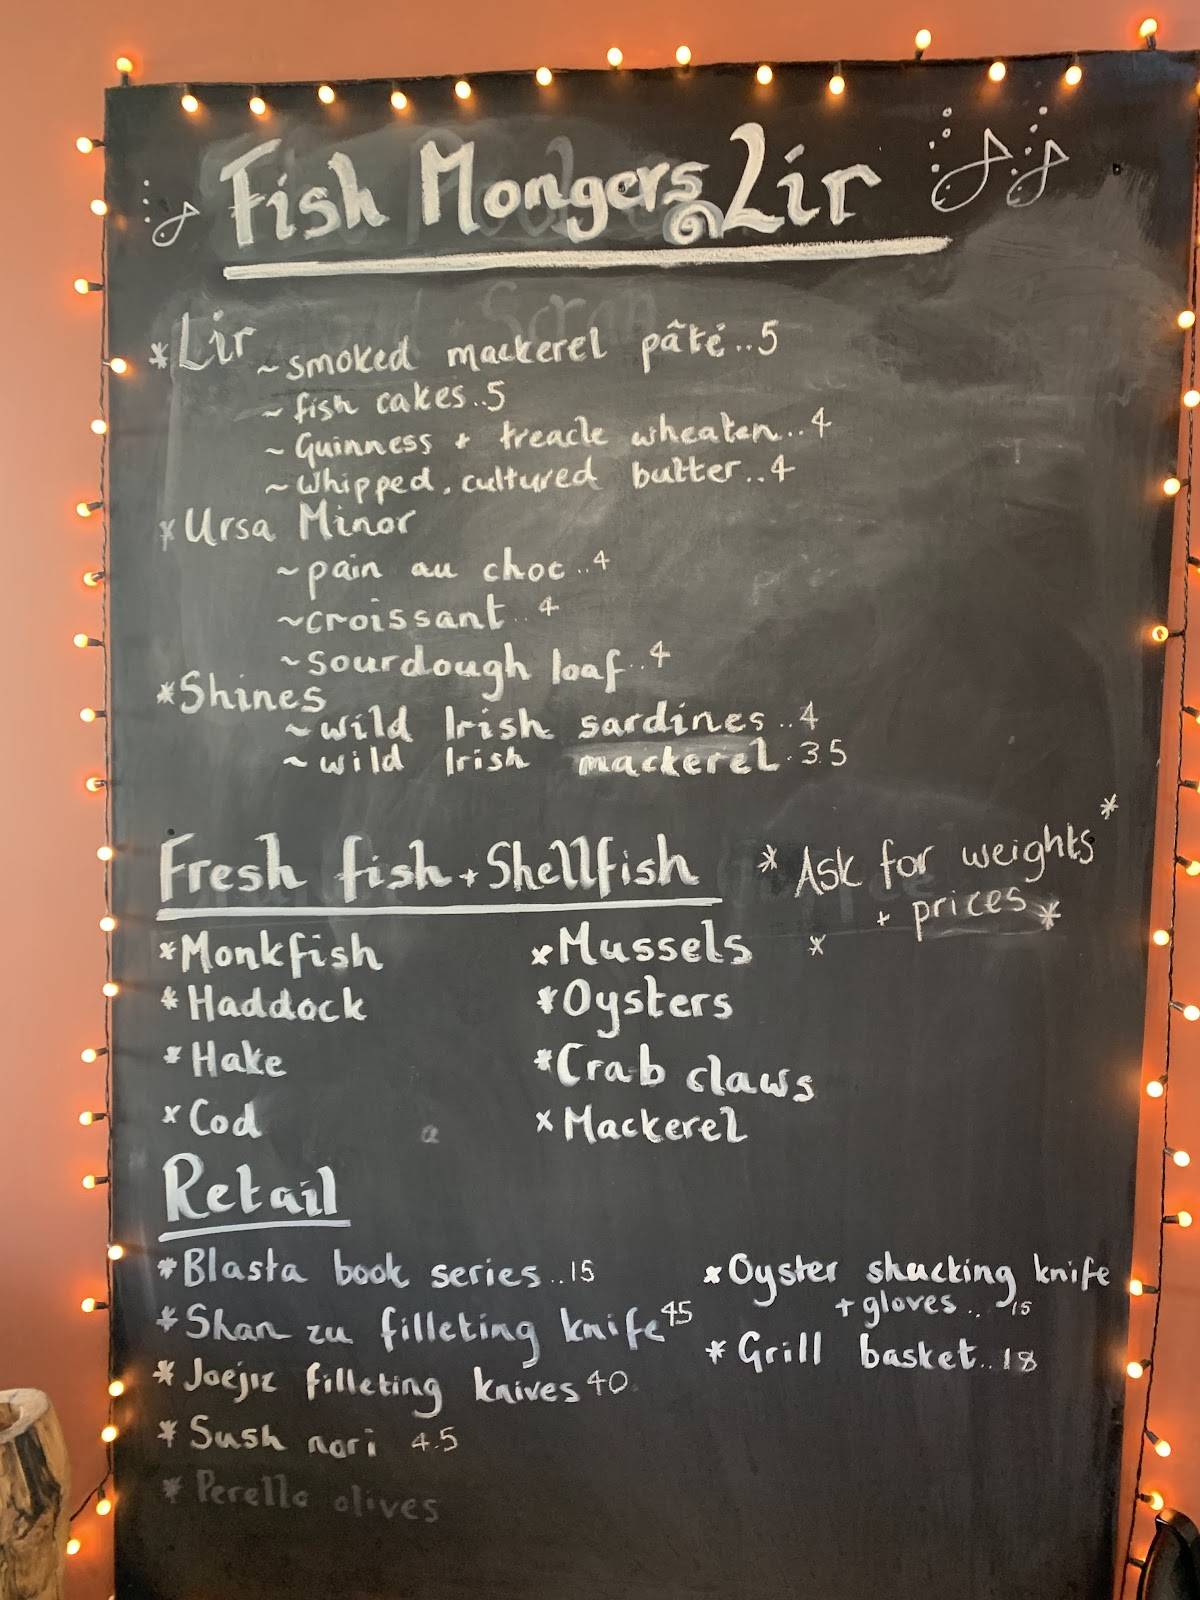 Fish Mongers Lir
*Lir ~smoked mackerel pâté..5
~fish cakes..5
~Guinness + treacle wheaten..4
~Whipped, cultured butter..4
*Ursa Minor
~pain au choc..4
~croissant..4
~sourdough loaf..4
*Shines
~wild Irish sardines..4
~wild Irish mackerel.3.5
Fresh fish + Shellfish
*Ask for weights*
*+ prices*
*Monkfish
*Haddock
*Hake
*Cod
*Mussels
*Oysters
*Crab claws
*Mackerel
Retail
*Blasta book series..15
*Shan zu filleting knife 45
*Joejiz filleting knives 40
*Sush nori 4.5
*Perello olives
*Oyster shucking knife
+gloves.. 15
*Grill basket..18